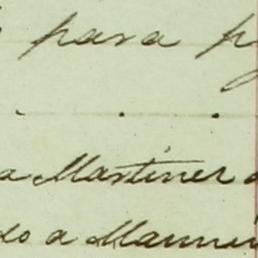 para p
. . .
a Martiner
do a Manuel